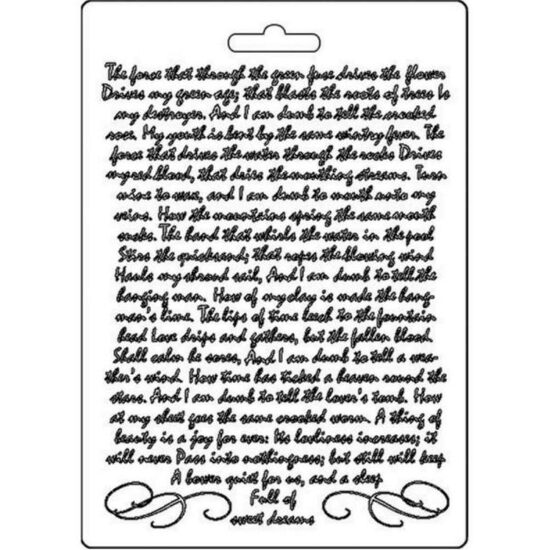 The force that through the green fuse drives the flower
Drives my green age; that blasts the roots of trees Is
my destroyer. And I am dumb to tell the crooked
rose. My youth is bent by the same wintry fever. The
force that drives the water through the rocks Drives
my red blood, that dries the mouthing streams. Turn
mine to wax, and I am dumb to mouth unto my
veins. How the mountains spring the same mouth
sucks. The hand that whirls the water in the pool
Stirs the quicksand; that ropes the blowing wind
Hauls my shroud sail, And I am dumb to tell the
hanging man. How of my clay is made the hang-
man's lime. The lips of time leech to the fountain
head Love drips and gathers, but the fallen blood.
Shall calm he sores, And I am dumb to tell a wea-
ther's wind. How time has ticked a heaven round the
stars. And I am dumb to tell the lover's tomb. How
at my sheet goes the same crooked worm. A thing of
beauty is a joy for ever: Its loveliness increases; it
will never Pass into nothingness; but still will keep
A bower quiet for us, and a sleep
Full of
sweet dreams